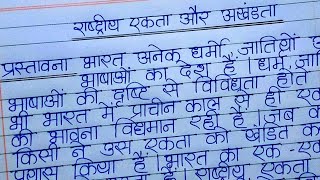 राष्ट्रीय एकता और अखंडता
प्रस्तावना भारत अनेक धर्मों, जातियों
भाषाओं का देश है। धर्म, जाति
भाषाओं की दृष्टि से विविधता होते
भी भारत में प्राचीन काल से ही
की भावना विद्यमान रही है। जब
किसी ने उस एकता को खंडित
प्रयास किया है। भारत का एक-एक
है। राष्ट्रीय एकता